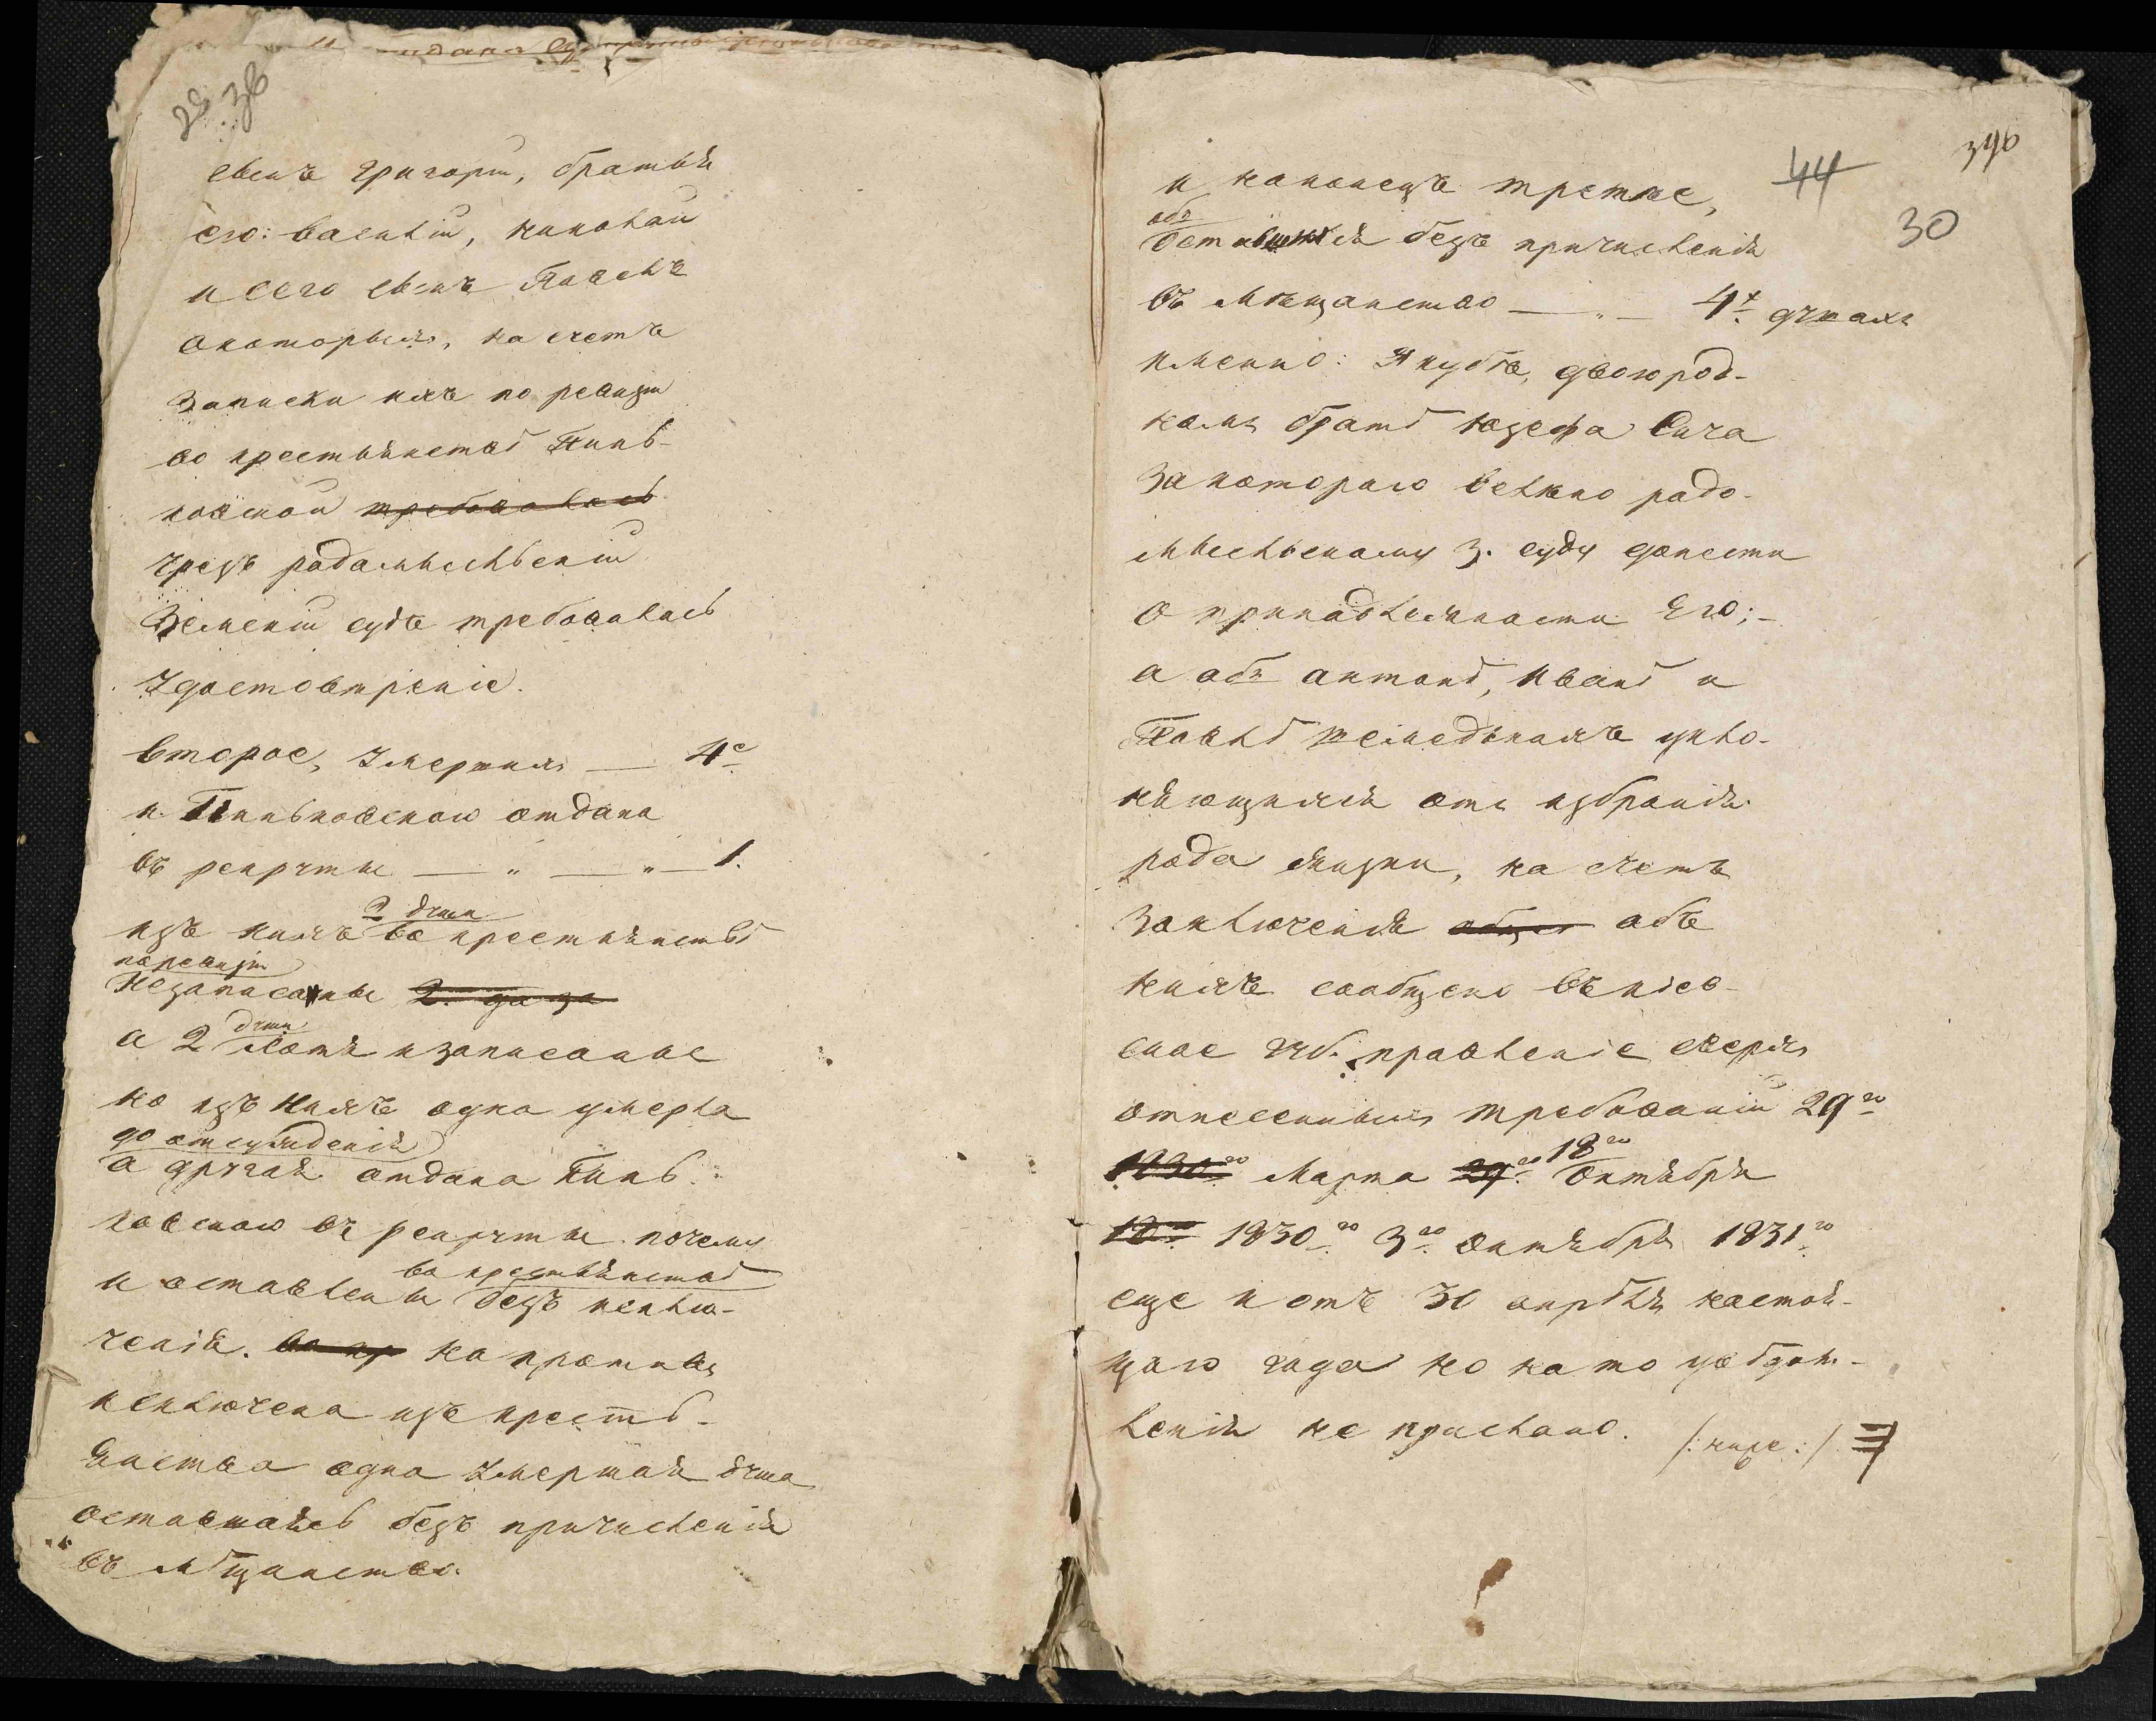 28 38
сынъ григорій, братья
его: василій, николай
и сего сынъ Павелъ
окоторыхъ, на счетъ
записки ихъ по ревизіи
во крестьянствѣ Пинь-
ковской требовалось
чрезъ радомысльскій
Земскій судъ требовалось
Удостовѣреніе.
второе, Умершихъ — 4е
и Пиньковскою отдана
въ рекруты — " — " — 1.
изъ нихъ 2 души во крестьянствѣ
по ревизіи
Незаписаны 2.
а 2 души хотя изаписаные
но изъ нихъ одна умерла
до отсужденія
а другая отдана Пинь-
ковскою въ рекруты почему
и оставлены во крестьянствѣ безъ исклю-
ченія. во кр Напротивъ
исключена изъ кресть-
янства одна Умершая душа
оставшаясь безъ причисленія
въ мѣщанство.
390
44
30
и наконецъ третье,
объ
оставшихся безъ причисленія
въ мѣщанство — " — 4х душахъ
именно: Якубѣ, двоюрод-
номъ братѣ Юзефа Сича
за котораго велено радо-
мысльскому З. суду донести
о принадлежности Его; -
а объ антонѣ, иванѣ и
Павлѣ шемедюкахъ укло-
няющихся отъ избранія
рода жизни, на счетъ
заключенія объ
нихъ сообщено въ кіев-
ское губ. правленіе сверхъ
отнесенныхъ требованій 29го
1830го Марта 29го 18го Октября
18го 1830го 3го октября 1831го
еще и отъ 30 апрѣля настоя-
щаго года но на то увѣдом-
ленія не прислано. /: ниже :/